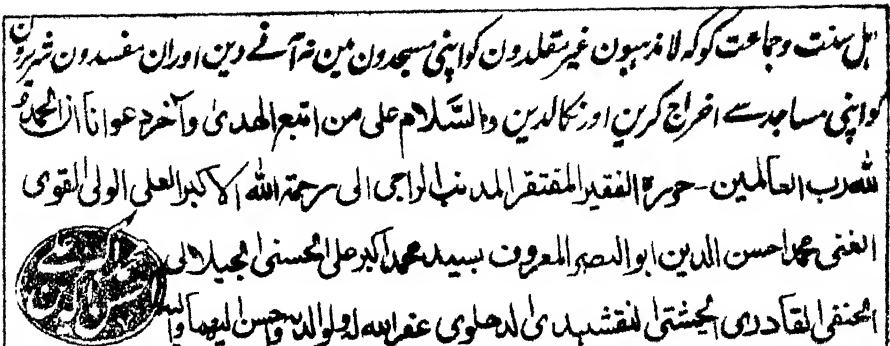 اہل سنت وجماعت کو کہ لامذہبون غیرمقلدون کو اپنی مسجدون مین نہ آنے دین اور ان مفسدون شریرون
کو اپنی مساجد سے اخراج کرین اور نکالدین والسَّلام علی من اتبع الهدی وآخر دعوانا ان الحمد
للہ رب العالمین - حررہ الفقیر المفتقر المذنب الراجی الی رحمة اللہ الاکبر العلی الولی القوی
الغنی محمد احسن الدین ابو النصر المعروف بسید محمد اکبر علی الحسنی الجیلانی
الحنفی القادری الچشتی النقشبندی الدهلوی غفر اللہ لہ ولوالدیہ واحسن الیهما والیہ